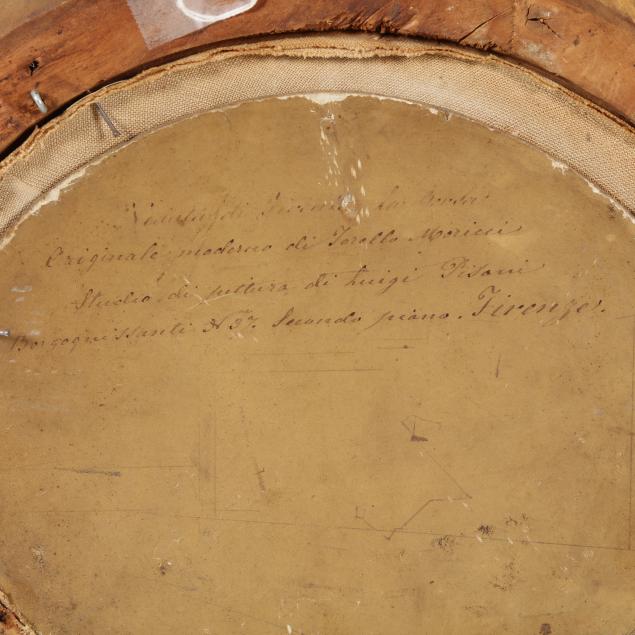 Originale moderno di Torello Moricci
Studio di pittura di Luigi Pisani
Borgognissanti N 37. Secondo piano. Firenze.